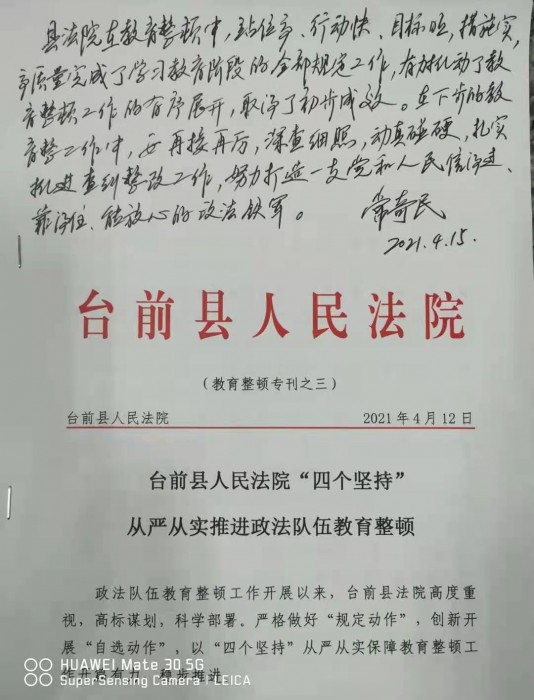 县法院在教育整顿中，站位高、行动快、目标明，措施实，
高质量完成了学习教育阶段的全部规定工作，有力地推动了教
育整顿工作的有序展开，取得了初步成效。在下步的教
育整顿工作中，要再接再厉，深查细照，动真碰硬，扎实
推进查纠整改工作，努力打造一支党和人民信得过、
靠得住、能放心的政法铁军。 常奇民
2021.4.15.
台前县人民法院
（教育整顿专刊之三）
台前县人民法院 2021年4月12日
台前县人民法院“四个坚持”
从严从实推进政法队伍教育整顿
政法队伍教育整顿工作开展以来，台前县法院高度重
视，高标谋划，科学部署。严格做好“规定动作”，创新开
展“自选动作”，以“四个坚持”从严从实保障教育整顿工
作开展有力、稳步推进。
HUAWEI Mate 30 5G
SuperSensing Camera LEICA